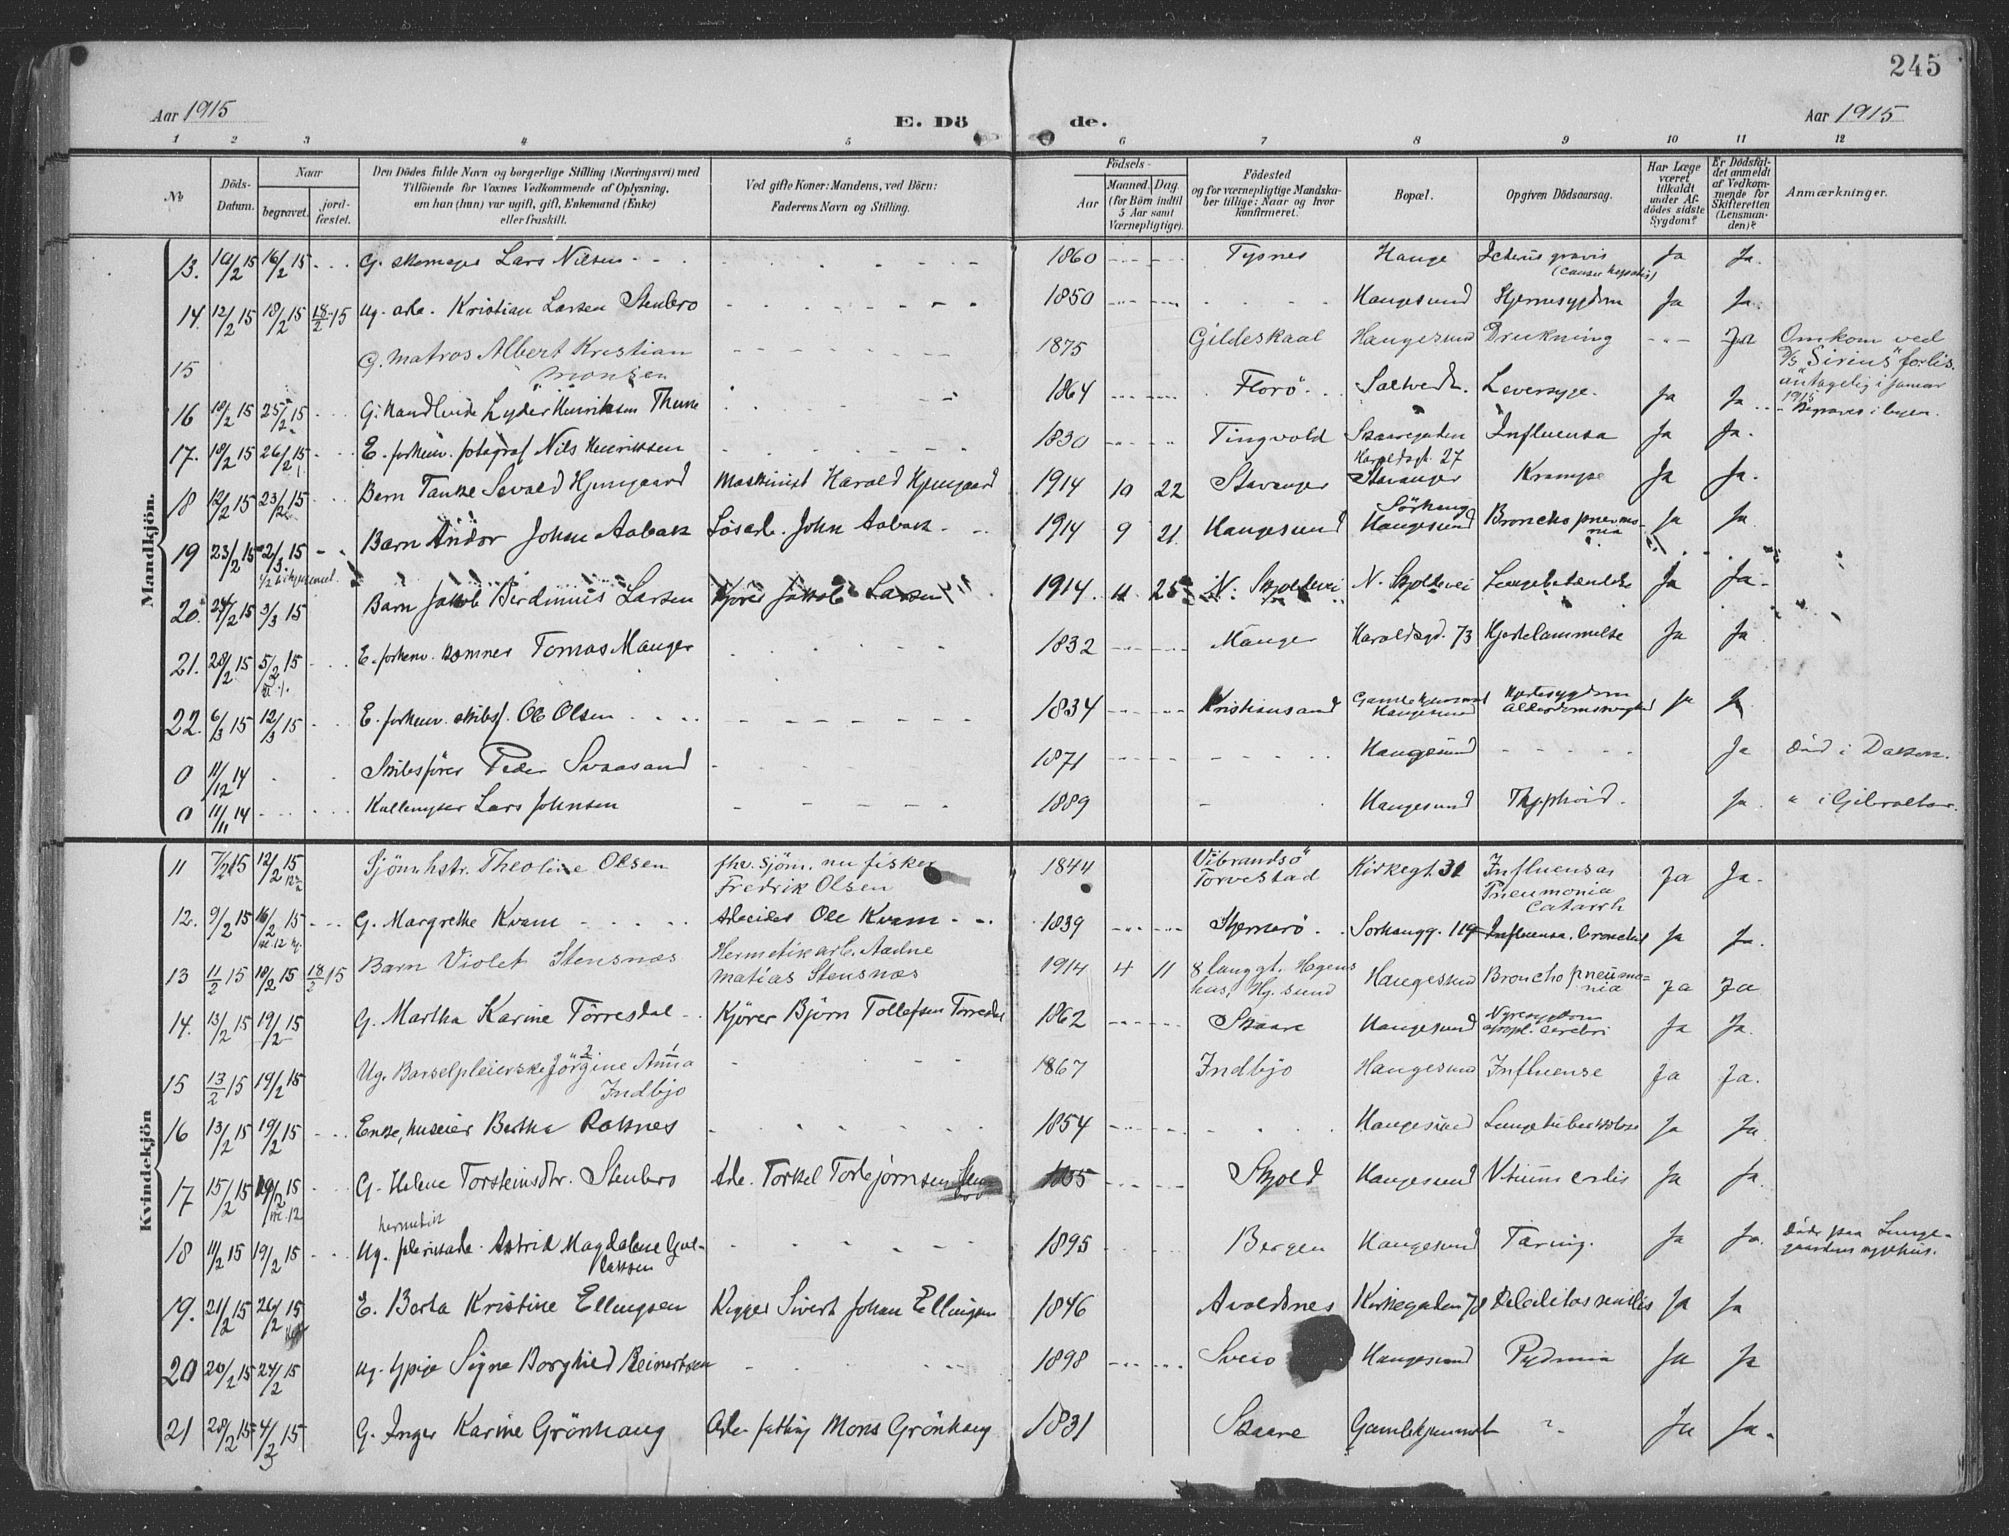 245
Aar 1915
E. Dö
de.
Aar 1915
1 2 3 4 5 6 7 8 9 10 11 12
№
Döds-Datum.
Naar
begravet.
jordfæstet.
Den Dödes fulde Navn og borgerlige Stilling (Næringsvei) med
Tilföiende for Voxnes Vedkommende af Oplysning,
om han (hun) var ugift, gift, Enkemand (Enke)
eller fraskilt.
Ved gifte Koner: Mandens, ved Börn:
Faderens Navn og Stilling.
Födsels-
Aar
Maaned. Dag.
(for Börn indtil
5 Aar samt
Værnepligtige).
Födested
og for værnepligtige Mandskaber tillige: Naar og hvor
konfirmeret.
Bopæl.
Opgiven Dödsaarsag.
Har Læge
været
tilkaldt
under Afdödes sidste
Sygdom?
Er Dödsfaldet anmeldt
af Vedkommende for
Skifteretten
(Lensmanden)?
Anmærkninger.
Mandkjön.
13. 10/2 15 16/2 15 G. skomager Lars Nilsen 1860 Tysnes Hauge Icterus gravis Ja Ja.
14. 12/2 15 18/2 15 18/2 15 Ug. arb. Kristian Larsen Stenbro 1850 Haugesund Hjernesygdom Ja Ja.
15 G. Matros Albert Kristian Monsen 1875 Gildeskaal Haugesund Drukning Ja Omkom ved D/S "Sirius" forlis. antagelig i januar 1915
16 18/2 15 25/2 15 G. Handlende Lyder Henriksen Thune 1864 Florö Saltvedt. Leversyge. Ja Ja Begraves i byen.
17. 18/2 15 26/2 15 E. forhenv. fotograf Nils Henriksen 1830 Tingvold Skaaregaden Influensa Ja Ja.
18 12/2 15 23/2 15 Barn Tanke Sevald Hjemgaard Maskinist Harald Hjemgaard 1914 10 22 Stavanger Haraldsgt. 27 Stavanger Krampe Ja Ja.
19 23/2 15 2/3 15 Barn Andor Johan Aabak Lösarb. John Aabak 1914 9 21. Haugesund Sörhaug Haugesund Bronchopneumonia Ja Ja
20. 24/2 15 3/3 15 Barn Jakob Berdinius Larsen Kjörer Jakob Larsen 1914. 11 25 N. Skjoldevei N. Skjoldevei Lungebetendelse Ja Ja
21. 28/2 15 5/3 15 E. forhenv. Tomas Manger 1832 Manger Haraldsgd. 73 Hjertelammelse Ja Ja
22. 6/3 15 12/3 15 E. forhenv. skibsf. Ole Olsen 1834 Kristiansand Haugesund Hjertesygdom Alderdomssvaghed Ja
0 11/12 14 Skibsförer Peder Svaasand 1871 Haugesund Ja Död i
0 11/11 14 Kullemper Lars Johnsen 1889 Haugesund Thyphoid. Ja. " i Gibraltar.
Kvindekjön
11 7/2 15 12/2 15 Sjömhstr. Theoline Olsen fhv. sjöm. nu fisker Fredrik Olsen 1844 Vibrandsö Torvestad Kirkegt. 31 Influensa, Pneumonia Catarrh Ja Ja.
12. 9/2 15 16/2 15 G. Margrethe Kvam Arbeider Ole Kvam 1839 Stjernerö Sorhaugg. 119 Influensa, bronchit Ja Ja.
13 11/2 15 18/2 15 18/2 15 Barn Violet Stensnæs Hermetikarb. Aadne Matias Stensnæs 1914 4 11 Langgt. Hagens hus, Hg. sund Haugesund Bronchopneumonia Ja Ja
14. 13/2 15 19/2 15 G. Martha Karine Törresdal Kjörer Björn Tollefsen Torresdal 1862 Skaare Haugesund Nyresygdom apopl. cerebri Ja Ja.
15 13/2 15 19/2 15 Ug. Barselpleierske Jörgine Anna Indbjo 1867 Indbjo Haugesund Influense Ja Ja.
16 13/2 15 19/2 15 Enke, huseier Bertha Roknes 1854 Haugesund Lungetuberkulose Ja Ja.
17 15/2 15 19/2 15 G. Helene Torsteinsdtr. Stenbro Arb. Torkel Torbjörnsen 1855 Skjold Haugesund Vitium cordis Ja Ja.
18 11/2 15 19/2 15 Ug. hermetikk Astrid Magdalene 1895 Bergen Haugesund Tæring. Ja Ja. Döde paa Lungegaardens sygehus.
19. 21/2 15 26/2 15 E. Berta Kristine Ellingsen Rigger Sivert Johan Ellingsen 1846 Avaldsnes Kirkegaden 78 Debilitas senilis Ja Ja
20 20/2 15 24/2 15 Ug. pige Signe Borghild Reinertsen 1898 Sveio Haugesund Pydmia Ja Ja
21 28/2 15 4/3 15 G. Inger Karine Grönhaug Arb. Mons Grönhaug 1831 Skaare Gamlehjemmet ? Ja Ja.